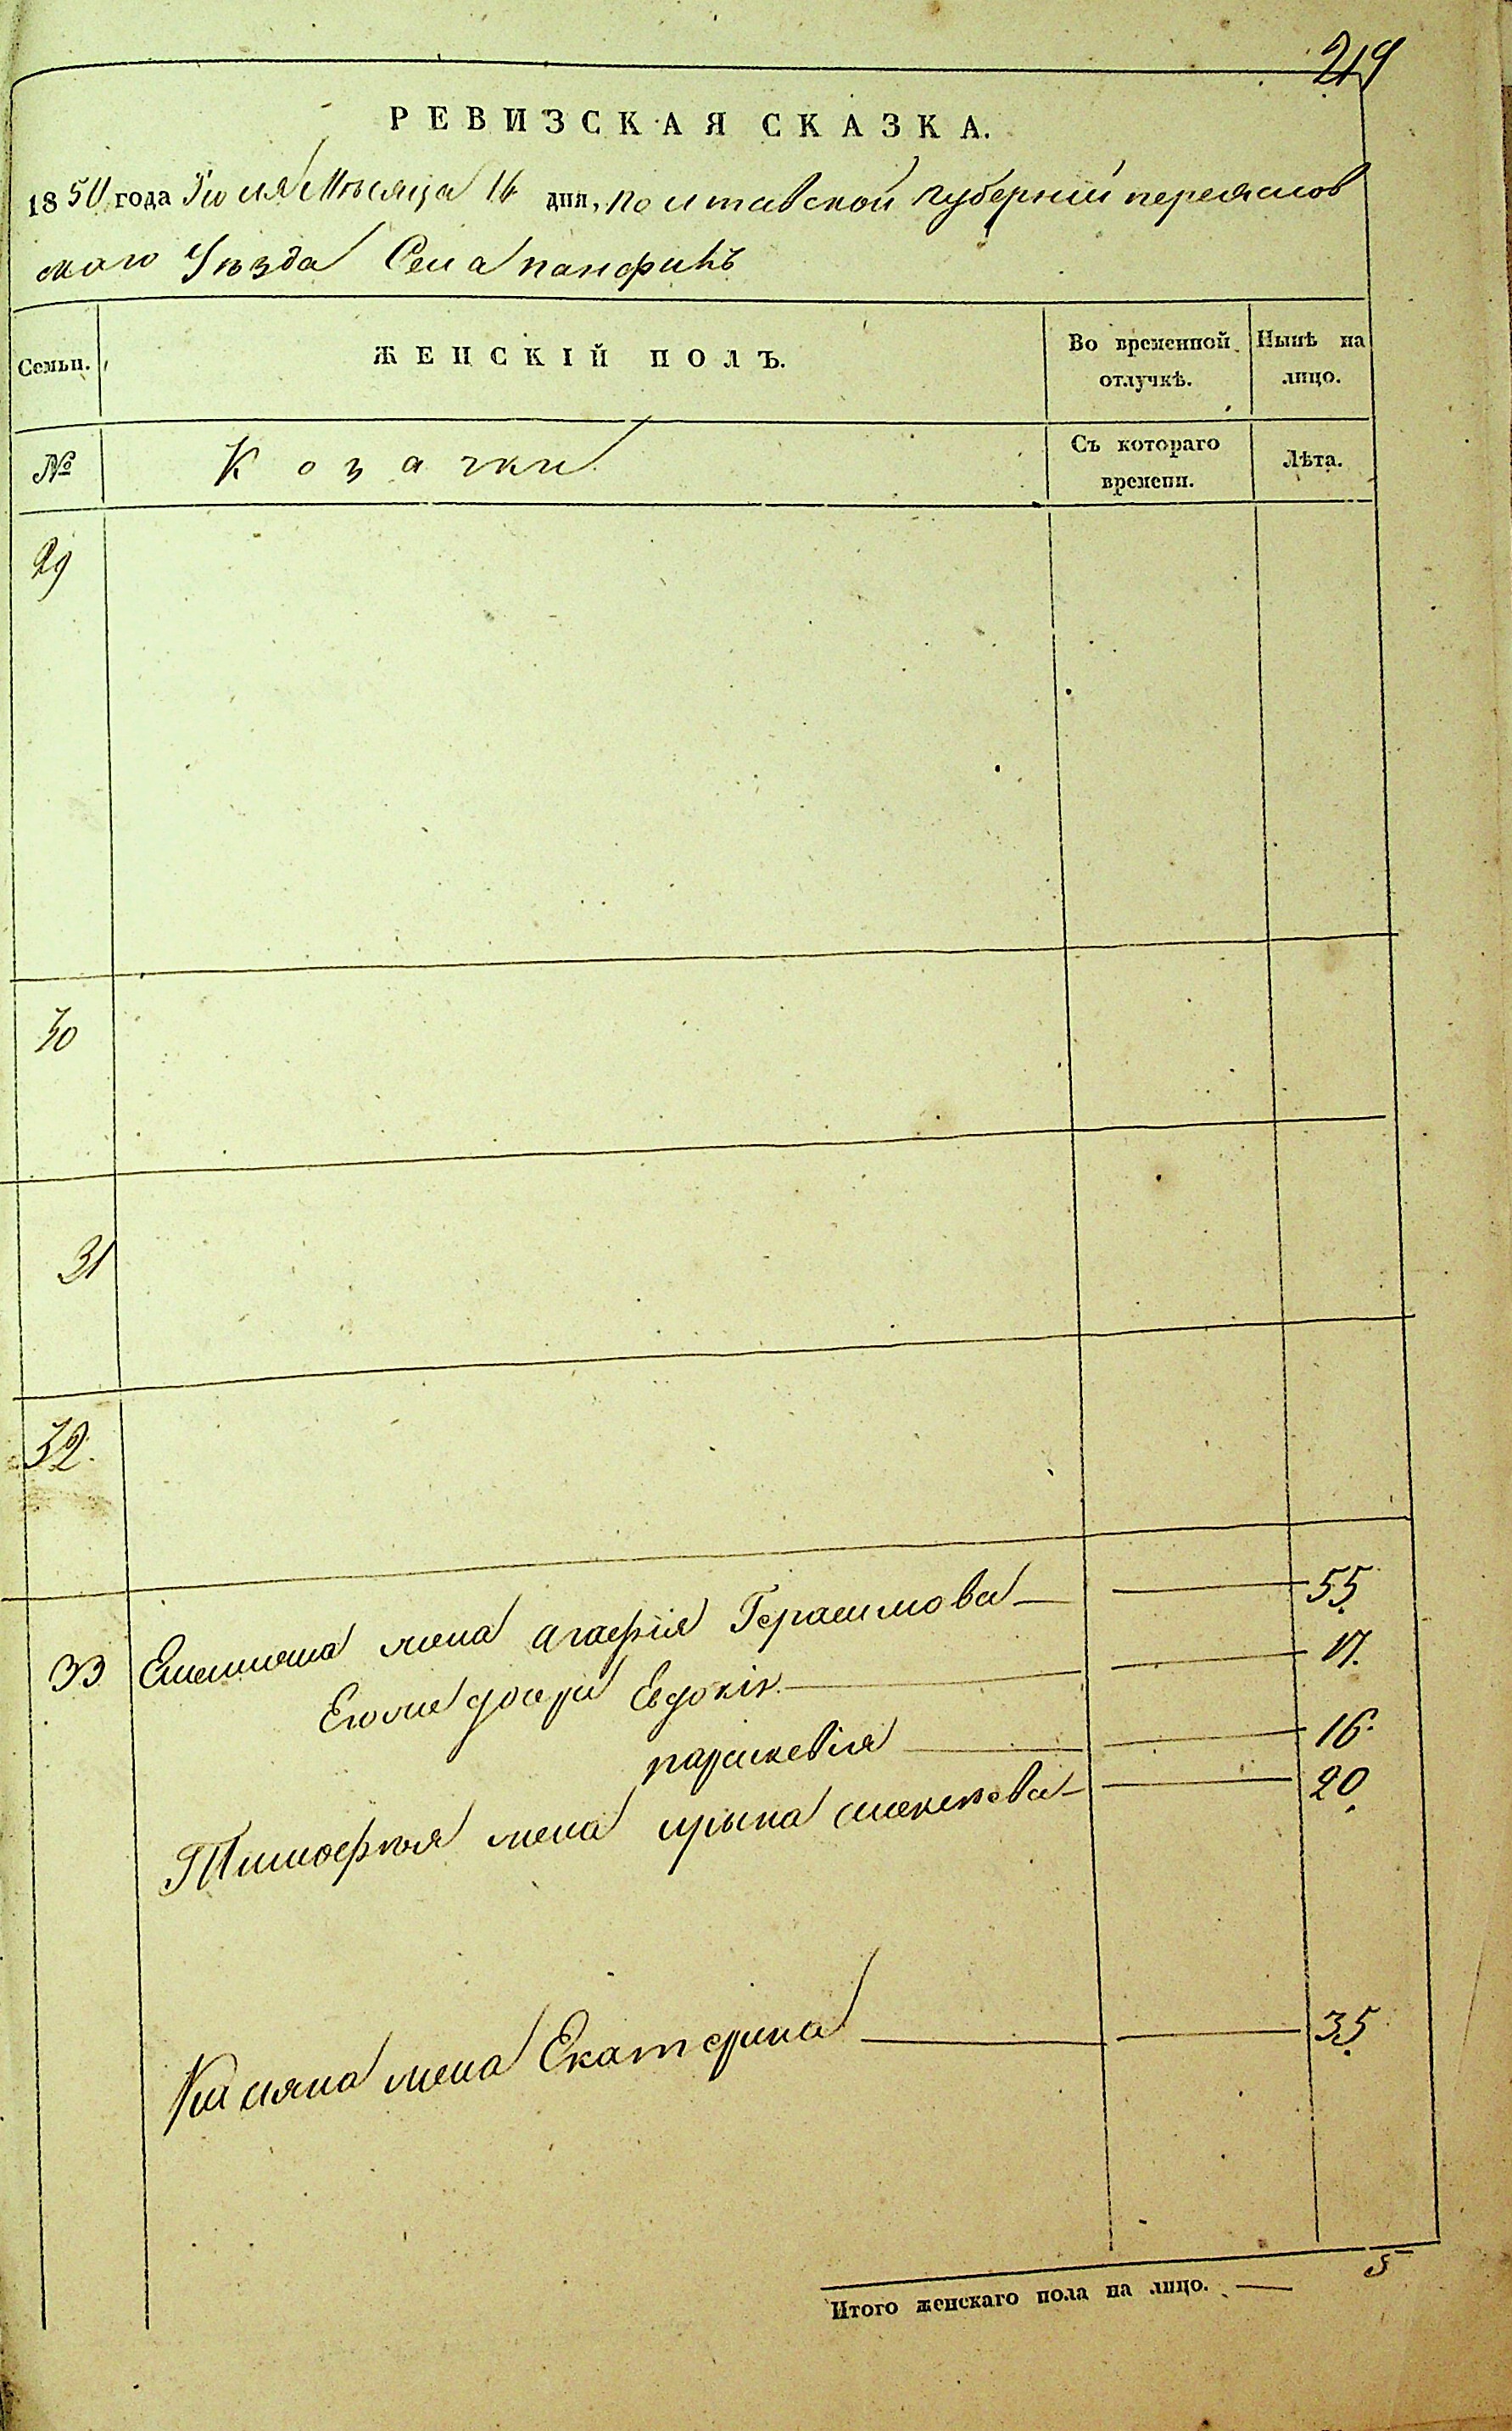 219
РЕВИЗСКАЯ СКАЗКА.
1850 года Іюля Мѣсяца 16 дня, полтавской губерніи переяслов
скаго Уѣзда Села панфилъ
Семьи.
ЖЕНСКІЙ ПОЛЪ.
Во временной отлучкѣ.
Нынѣ на лицо.
№
Козачки
Съ котораго времени.
Лѣта.
29
30
31
32.
33 Емелиана жена агафія Герасимова 55.
Его дочери Евдокія 17.
параскевія 16.
Тимофѣя жена ирына 20.
жена Екатерина 35.
Итого женскаго пола на лицо. 5